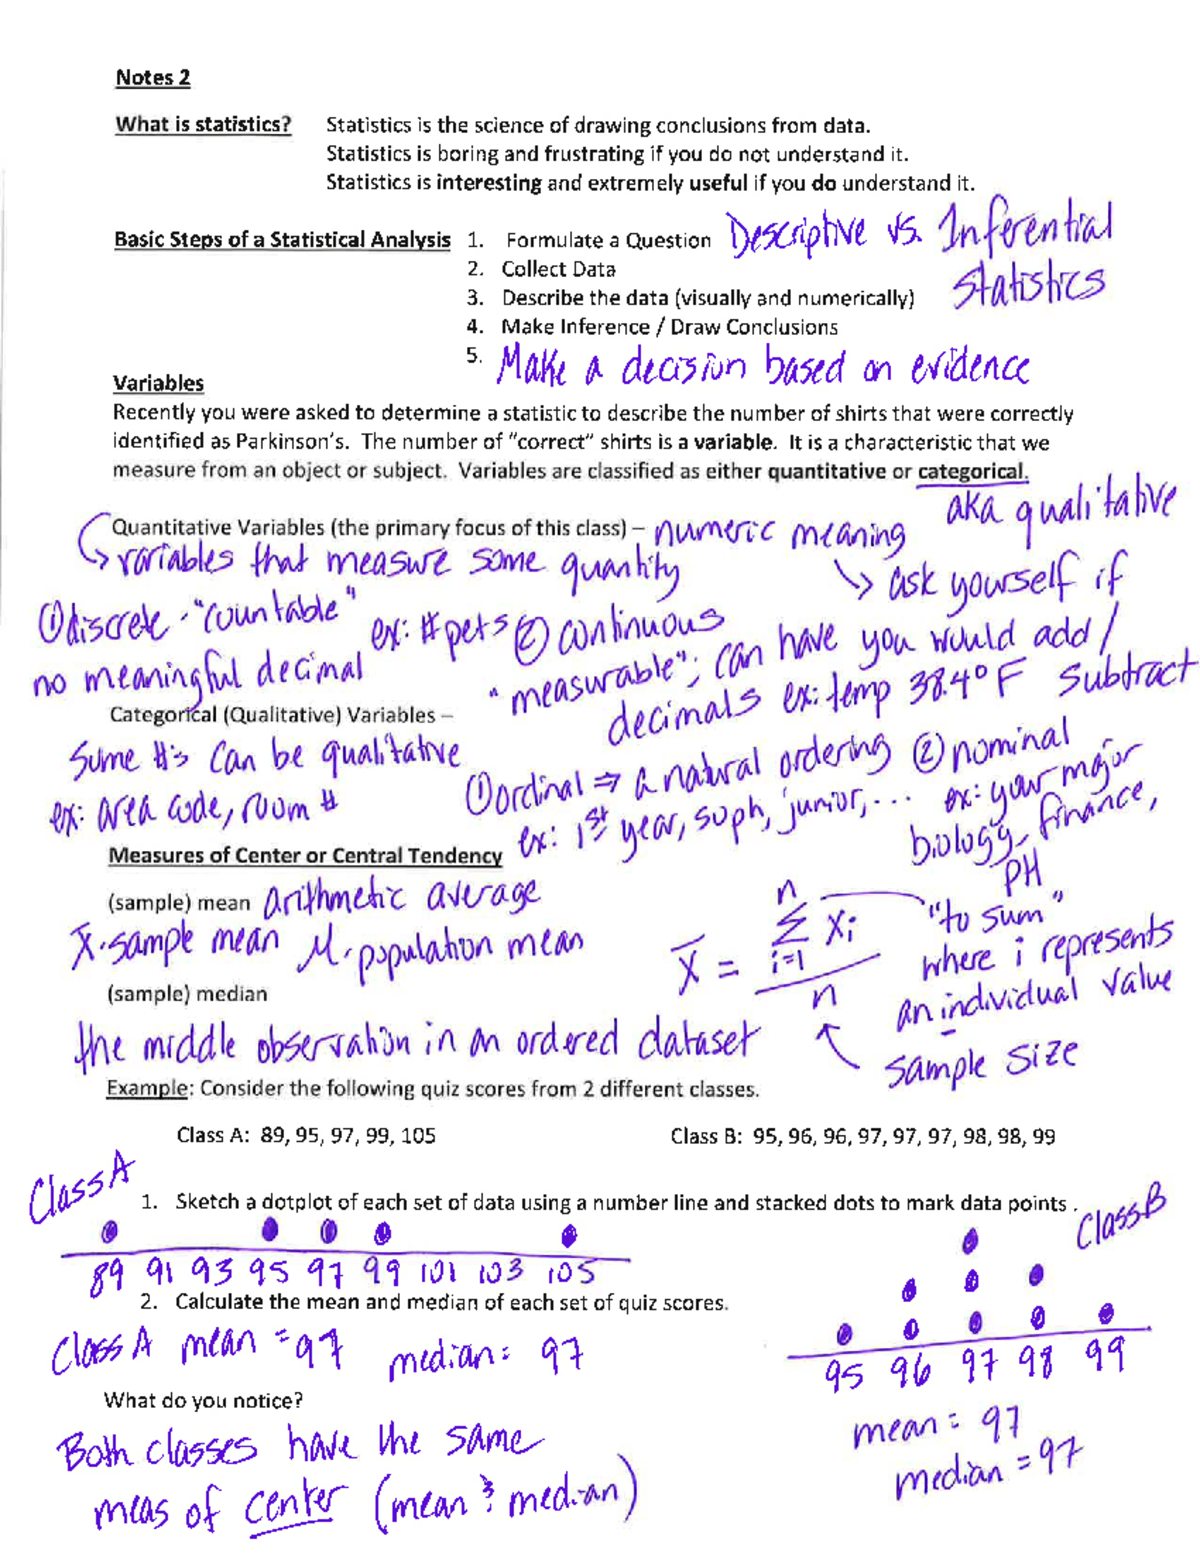 Notes 2
What is statistics? Statistics is the science of drawing conclusions from data.
Statistics is boring and frustrating if you do not understand it.
Statistics is interesting and extremely useful if you do understand it.
Basic Steps of a Statistical Analysis 1. Formulate a Question Descriptive vs. Inferential
2. Collect Data statistics
3. Describe the data (visually and numerically)
4. Make Inference / Draw Conclusions
5. Make a decision based on evidence
Variables
Recently you were asked to determine a statistic to describe the number of shirts that were correctly
identified as Parkinson's. The number of "correct" shirts is a variable. It is a characteristic that we
measure from an object or subject. Variables are classified as either quantitative or categorical.
aka qualitative
Quantitative Variables (the primary focus of this class) – numeric meaning
↳ variables that measure some quantity
↳ ask yourself if
you would add/
subtract
① discrete - "countable" ex: # pets
no meaningful decimal
② continuous
"measurable"; can have
decimals ex: temp 38.4° F
Categorical (Qualitative) Variables –
Some #'s can be qualitative
ex: area code, room #
① ordinal ⇒ a natural ordering
ex: 1st year, soph, junior, ...
② nominal
ex: your major
biology, finance,
PH
Measures of Center or Central Tendency
(sample) mean arithmetic average
x̄ - sample mean μ - population mean
x̄ = n Σ i=1 xi / n
"to sum"
where i represents
an individual value
sample size
(sample) median
the middle observation in an ordered dataset
Example: Consider the following quiz scores from 2 different classes.
Class A: 89, 95, 97, 99, 105 Class B: 95, 96, 96, 97, 97, 97, 98, 98, 99
1. Sketch a dotplot of each set of data using a number line and stacked dots to mark data points .
Class A
89 91 93 95 97 99 101 103 105
Class B
95 96 97 98 99
mean = 97
median = 97
2. Calculate the mean and median of each set of quiz scores.
Class A mean = 97 median = 97
What do you notice?
Both classes have the same
meas of center (mean & median)